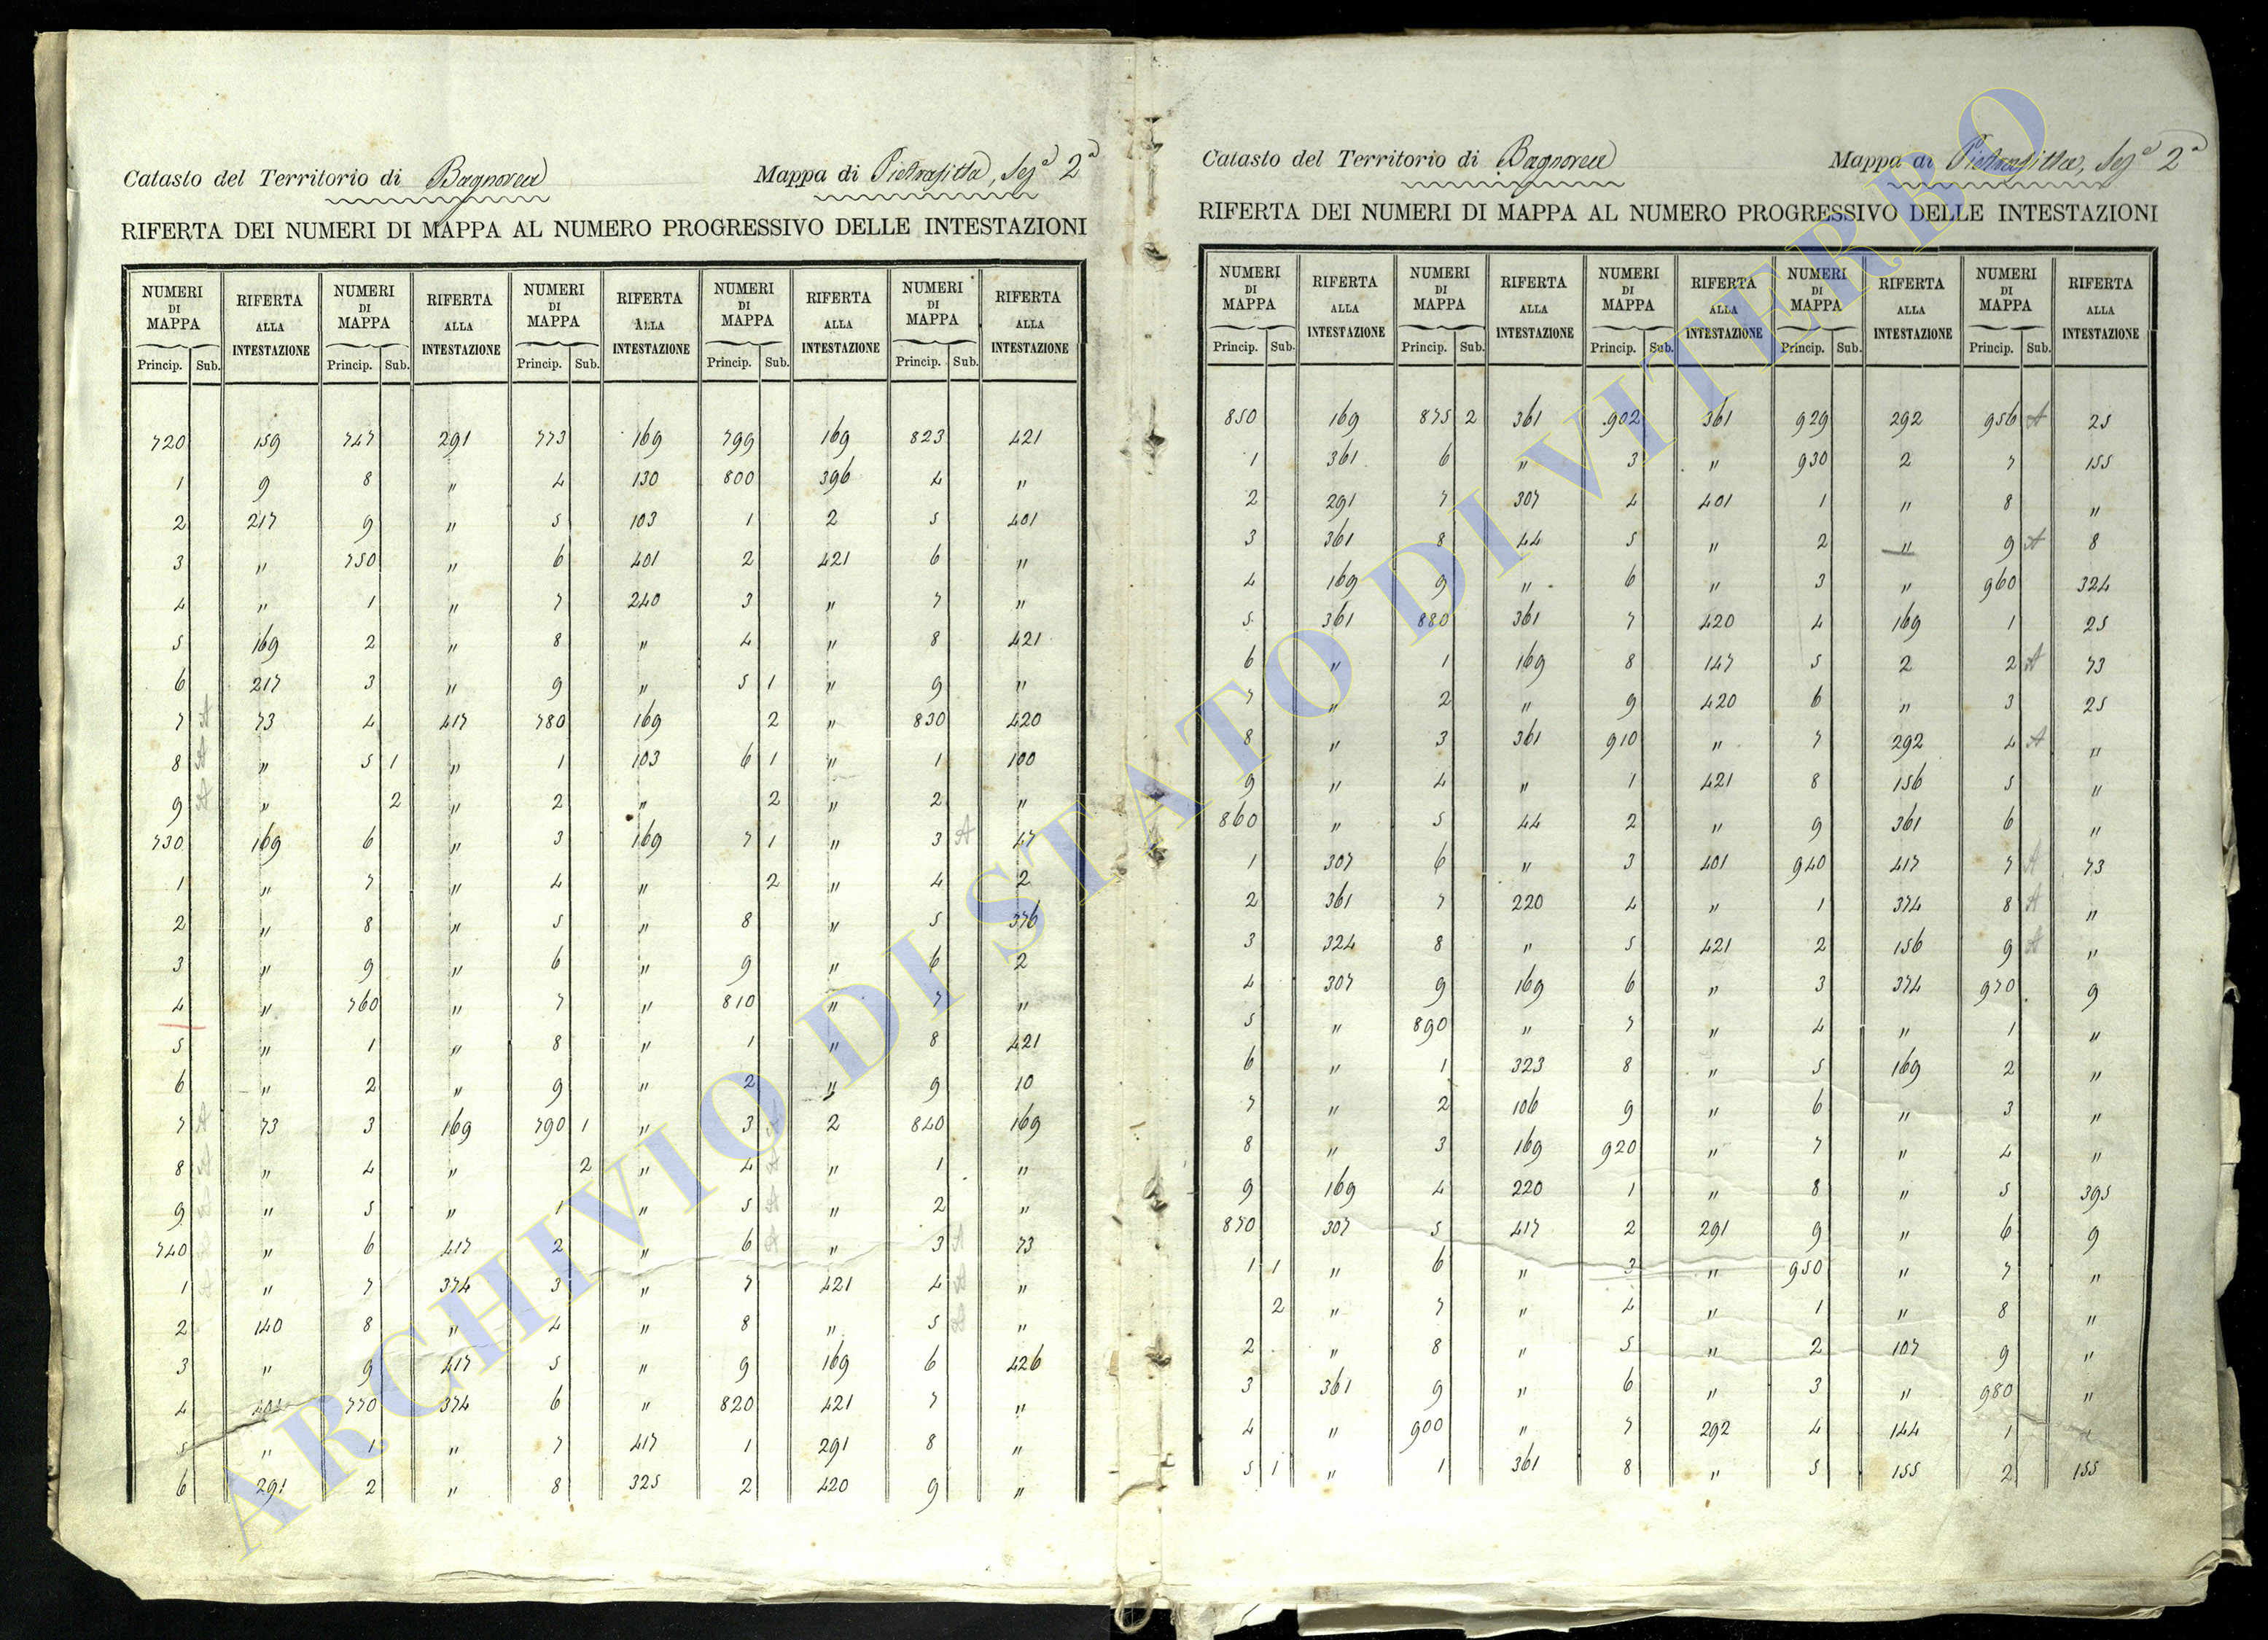 Catasto del Territorio di Bagnorea Mappa di Pietrafitta, Sez.ª 2ª
RIFERTA DEI NUMERI DI MAPPA AL NUMERO PROGRESSIVO DELLE INTESTAZIONI
NUMERI DI MAPPA RIFERTA ALLA INTESTAZIONE NUMERI DI MAPPA RIFERTA ALLA INTESTAZIONE NUMERI DI MAPPA RIFERTA ALLA INTESTAZIONE NUMERI DI MAPPA RIFERTA ALLA INTESTAZIONE NUMERI DI MAPPA RIFERTA ALLA INTESTAZIONE
Princip. Sub. Princip. Sub. Princip. Sub. Princip. Sub. Princip. Sub.
720 159 747 291 773 169 799 169 823 421
1 9 8 " 4 130 800 396 4 "
2 217 9 " 5 103 1 2 5 401
3 " 750 " 6 401 2 421 6 "
4 " 1 " 7 240 3 " 7 "
5 169 2 " 8 " 4 " 8 421
6 217 3 " 9 " 5 1 " 9 "
7 A 73 4 417 780 169 2 " 830 420
8 A " 5 1 " 1 103 6 1 " 1 100
9 A " 2 " 2 " 2 " 2 "
730 169 6 " 3 169 7 1 " 3 A 47
1 " 7 " 4 " 2 " 4 2
2 " 8 " 5 " 8 " 5 376
3 " 9 " 6 " 9 " 6 2
4 " 760 " 7 " 810 " 7 "
5 " 1 " 8 " 1 " 8 421
6 " 2 " 9 " 2 " 9 10
7 A 73 3 169 790 1 " 3 A 2 840 169
8 A " 4 " 2 " 4 A " 1 "
9 " 5 " 1 " 5 A " 2 "
740 " 6 417 2 " 6 A " 3 A 73
1 A " 7 374 3 " 7 421 4 A "
2 140 8 " 4 " 8 " 5 "
3 " 9 417 5 " 9 169 6 426
4 401 770 374 6 " 820 421 7 "
5 " 1 " 7 417 1 291 8 "
6 291 2 " 8 325 2 420 9 "
Catasto del Territorio di Bagnorea Mappa di Pietrafitta, Sez.ª 2ª
RIFERTA DEI NUMERI DI MAPPA AL NUMERO PROGRESSIVO DELLE INTESTAZIONI
NUMERI DI MAPPA RIFERTA ALLA INTESTAZIONE NUMERI DI MAPPA RIFERTA ALLA INTESTAZIONE NUMERI DI MAPPA RIFERTA ALLA INTESTAZIONE NUMERI DI MAPPA RIFERTA ALLA INTESTAZIONE NUMERI DI MAPPA RIFERTA ALLA INTESTAZIONE
Princip. Sub. Princip. Sub. Princip. Sub. Princip. Sub. Princip. Sub.
850 169 875 2 361 902 361 929 292 956 A 25
1 361 6 " 3 " 930 2 7 155
2 291 7 307 4 401 1 " 8 "
3 361 8 44 5 " 2 " 9 A 8
4 169 9 " 6 " 3 " 960 324
5 361 880 361 7 420 4 169 1 25
6 " 1 169 8 147 5 2 2 A 73
7 " 2 " 9 420 6 " 3 25
8 " 3 361 910 " 7 292 4 A "
9 " 4 " 1 421 8 156 5 "
860 " 5 44 2 " 9 361 6 "
1 307 6 " 3 401 940 417 7 A 73
2 361 7 220 4 " 1 374 8 A "
3 324 8 " 5 421 2 156 9 A "
4 307 9 169 6 " 3 374 970 9
5 " 890 " 7 " 4 " 1 "
6 " 1 323 8 " 5 169 2 "
7 " 2 106 9 " 6 " 3 "
8 " 3 169 920 " 7 " 4 "
9 169 4 220 1 " 8 " 5 395
870 307 5 417 2 291 9 " 6 9
1 1 " 6 " 3 " 950 " 7 "
2 " 7 " 4 " 1 " 8 "
2 " 8 " 5 " 2 107 9 "
3 361 9 " 6 " 3 " 980 "
4 " 900 " 7 292 4 144 1 "
5 1 " 1 361 8 " 5 155 2 155
ARCHIVIO DI STATO DI VITERBO